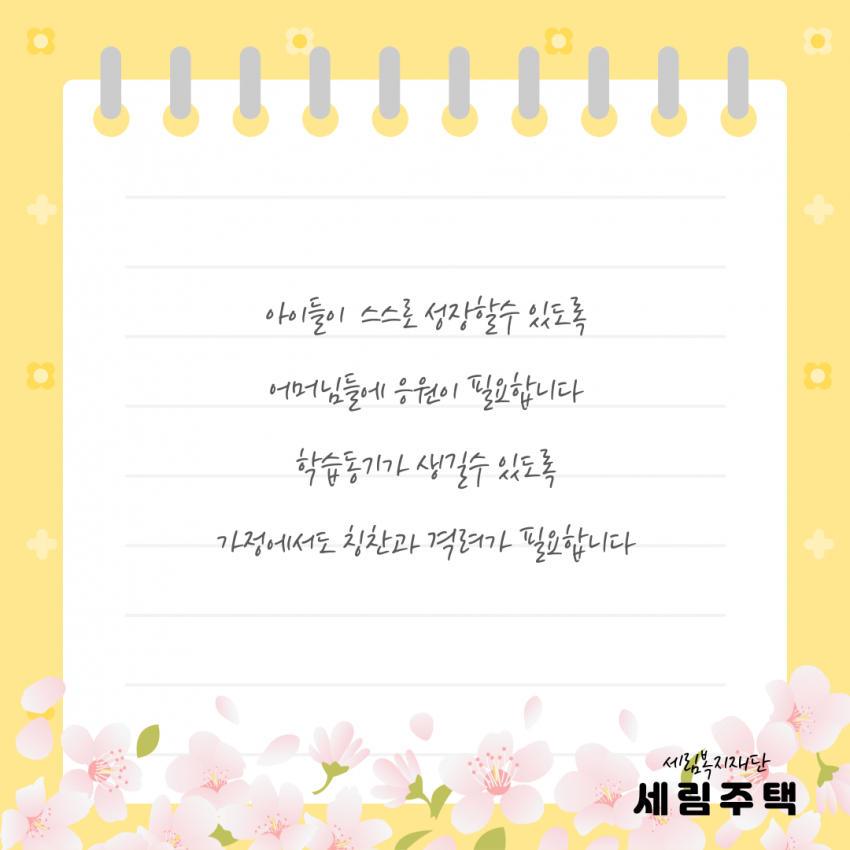 아이들이 스스로 성장할수 있도록
어머님들에 응원이 필요합니다
학습동기가 생길수 있도록
가정에서도 칭찬과 격려가 필요합니다
세림복지재단
세림주택